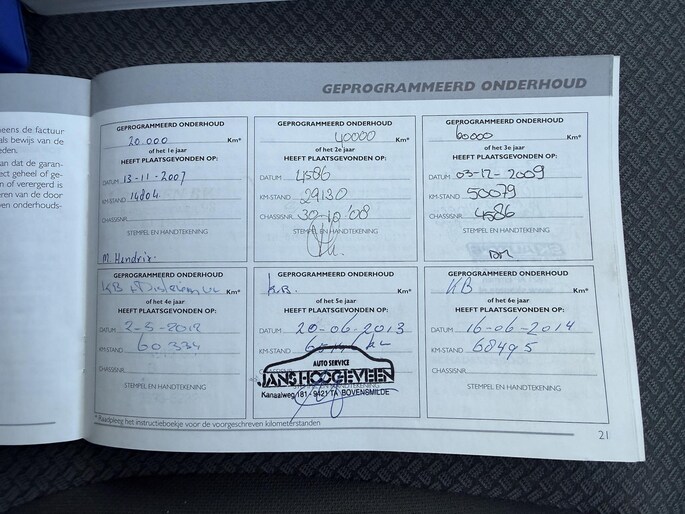 eens de factuur
als bewijs van de
eden.
an dat de garan-
ect geheel of ge-
n of verergerd is
eren van de door
ven onderhouds-
GEPROGRAMMEERD ONDERHOUD
GEPROGRAMMEERD ONDERHOUD
20.000 Km*
of het 1e jaar
HEEFT PLAATSGEVONDEN OP:
DATUM 13-11-2007
KM-STAND 14804
CHASSISNR.
STEMPEL EN HANDTEKENING
M. Hendrix.
GEPROGRAMMEERD ONDERHOUD
40000 Km*
of het 2e jaar
HEEFT PLAATSGEVONDEN OP:
DATUM 4586
KM-STAND 29130
CHASSISNR. 30-10-'08
STEMPEL EN HANDTEKENING
GEPROGRAMMEERD ONDERHOUD
60000 Km*
of het 3e jaar
HEEFT PLAATSGEVONDEN OP:
DATUM 03-12-2009
KM-STAND 50079
CHASSISNR. 4586
STEMPEL EN HANDTEKENING
GEPROGRAMMEERD ONDERHOUD
KB Km*
of het 4e jaar
HEEFT PLAATSGEVONDEN OP:
DATUM 2-5-2012
KM-STAND 60334
CHASSISNR.
STEMPEL EN HANDTEKENING
GEPROGRAMMEERD ONDERHOUD
K.B. Km*
of het 5e jaar
HEEFT PLAATSGEVONDEN OP:
DATUM 20-06-2013
KM-STAND
AUTO SERVICE
JANS HOOGEVEEN
STEMPEL EN HANDTEKENING
Kanaalweg 181 - 9421 TA BOVENSMILDE
GEPROGRAMMEERD ONDERHOUD
KB Km*
of het 6e jaar
HEEFT PLAATSGEVONDEN OP:
DATUM 16-06-2014
KM-STAND 68495
CHASSISNR.
STEMPEL EN HANDTEKENING
* Raadpleeg het instructieboekje voor de voorgeschreven kilometerstanden
21